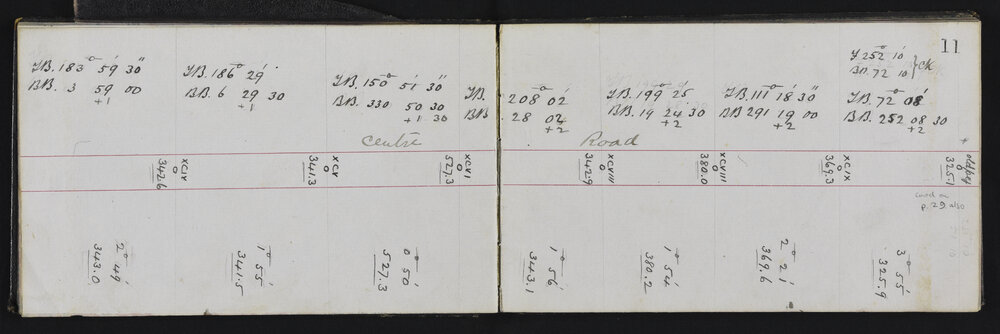 11
F.B. 183° 59' 30"
B.B. 3 59 00
+1
F.B. 186° 29'
B.B. 6 29 30
+1
F.B. 150° 51' 30"
B.B. 330 50 30
+1 30
F.B. 208° 02'
B.B. 28 02
+2
F.B. 199° 25'
B.B. 19 24 30
+2
F.B. 111° 18' 30"
B.B. 291 19 00
+2
F. 252° 10'
B.B. 72 10 } CK
F.B. 72° 08'
B.B. 252 08 30
+2
Centre Road
XCIV
342.6
XCV
341.3
XCVI
527.3
342.9
XCVIII
380.0
XCIX
369.3
old peg
325.1
p. 29 also
2° 49'
343.0
1° 55'
341.5
0° 50'
527.3
1° 56'
343.1
1° 54'
380.2
2° 21'
369.6
3° 55'
325.9